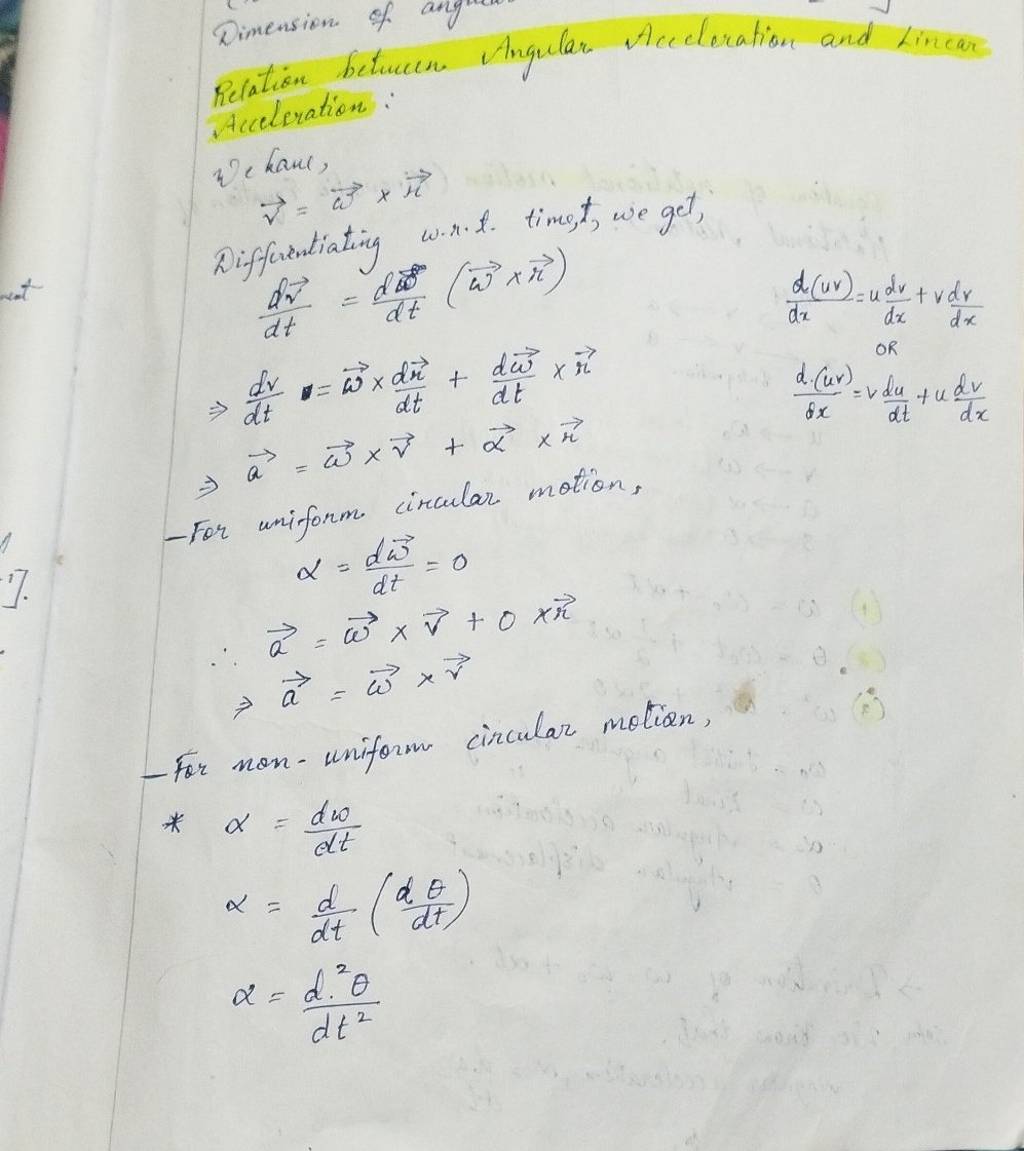 Dimension of
Relation between Angular Acceleration and Linear
Acceleration :
We have,
v⃗ = ω⃗ × r⃗
Differentiating w.r.t. time, t, we get,
dv⃗/dt = dω⃗/dt (ω⃗ × r⃗)
d(uv)/dx = u dv/dx + v dv/dx
OR
d.(uv)/dx = v du/dt + u dv/dx
⇒ dv/dt = ω⃗ × dr⃗/dt + dω⃗/dt × r⃗
⇒ a⃗ = ω⃗ × v⃗ + α⃗ × r⃗
- For uniform circular motion,
α = dω⃗/dt = 0
∴ a⃗ = ω⃗ × v⃗ + 0 × r⃗
⇒ a⃗ = ω⃗ × v⃗
- For non-uniform circular motion,
* α = dω/dt
α = d/dt (dθ/dt)
α = d.²θ/dt²